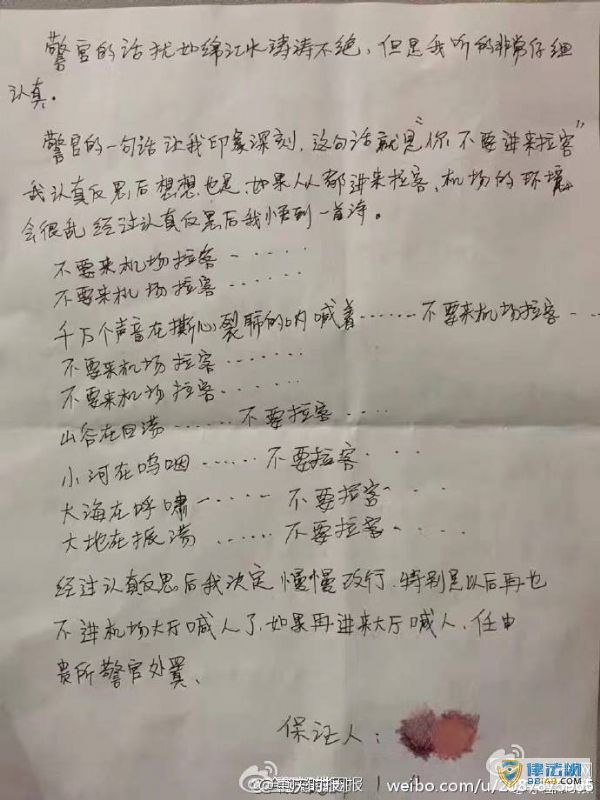 警官的话犹如绵江水涛涛不绝，但是我听的非常仔细
认真。
警官的一句话让我印象深刻，这句话就是"你不要进来拉客"
我认真反思后想想也是，如果人人都进来拉客，机场的环境
会很乱 经过认真反思后我悟到一首诗。
不要来机场拉客······
不要来机场拉客······
千万个声音在撕心裂肺的呐喊着······不要来机场拉客···
不要来机场拉客······
不要来机场拉客······
山谷在回荡······不要拉客····
小河在呜咽······不要拉客····
大海在呼啸······不要拉客····
大地在振荡······不要拉客····
经过认真反思后我决定慢慢改行、特别是以后再也
不进机场大厅喊人了、如果再进来大厅喊人，任由
贵所警官处置、
保证人：
律法网
weibo.com/u/